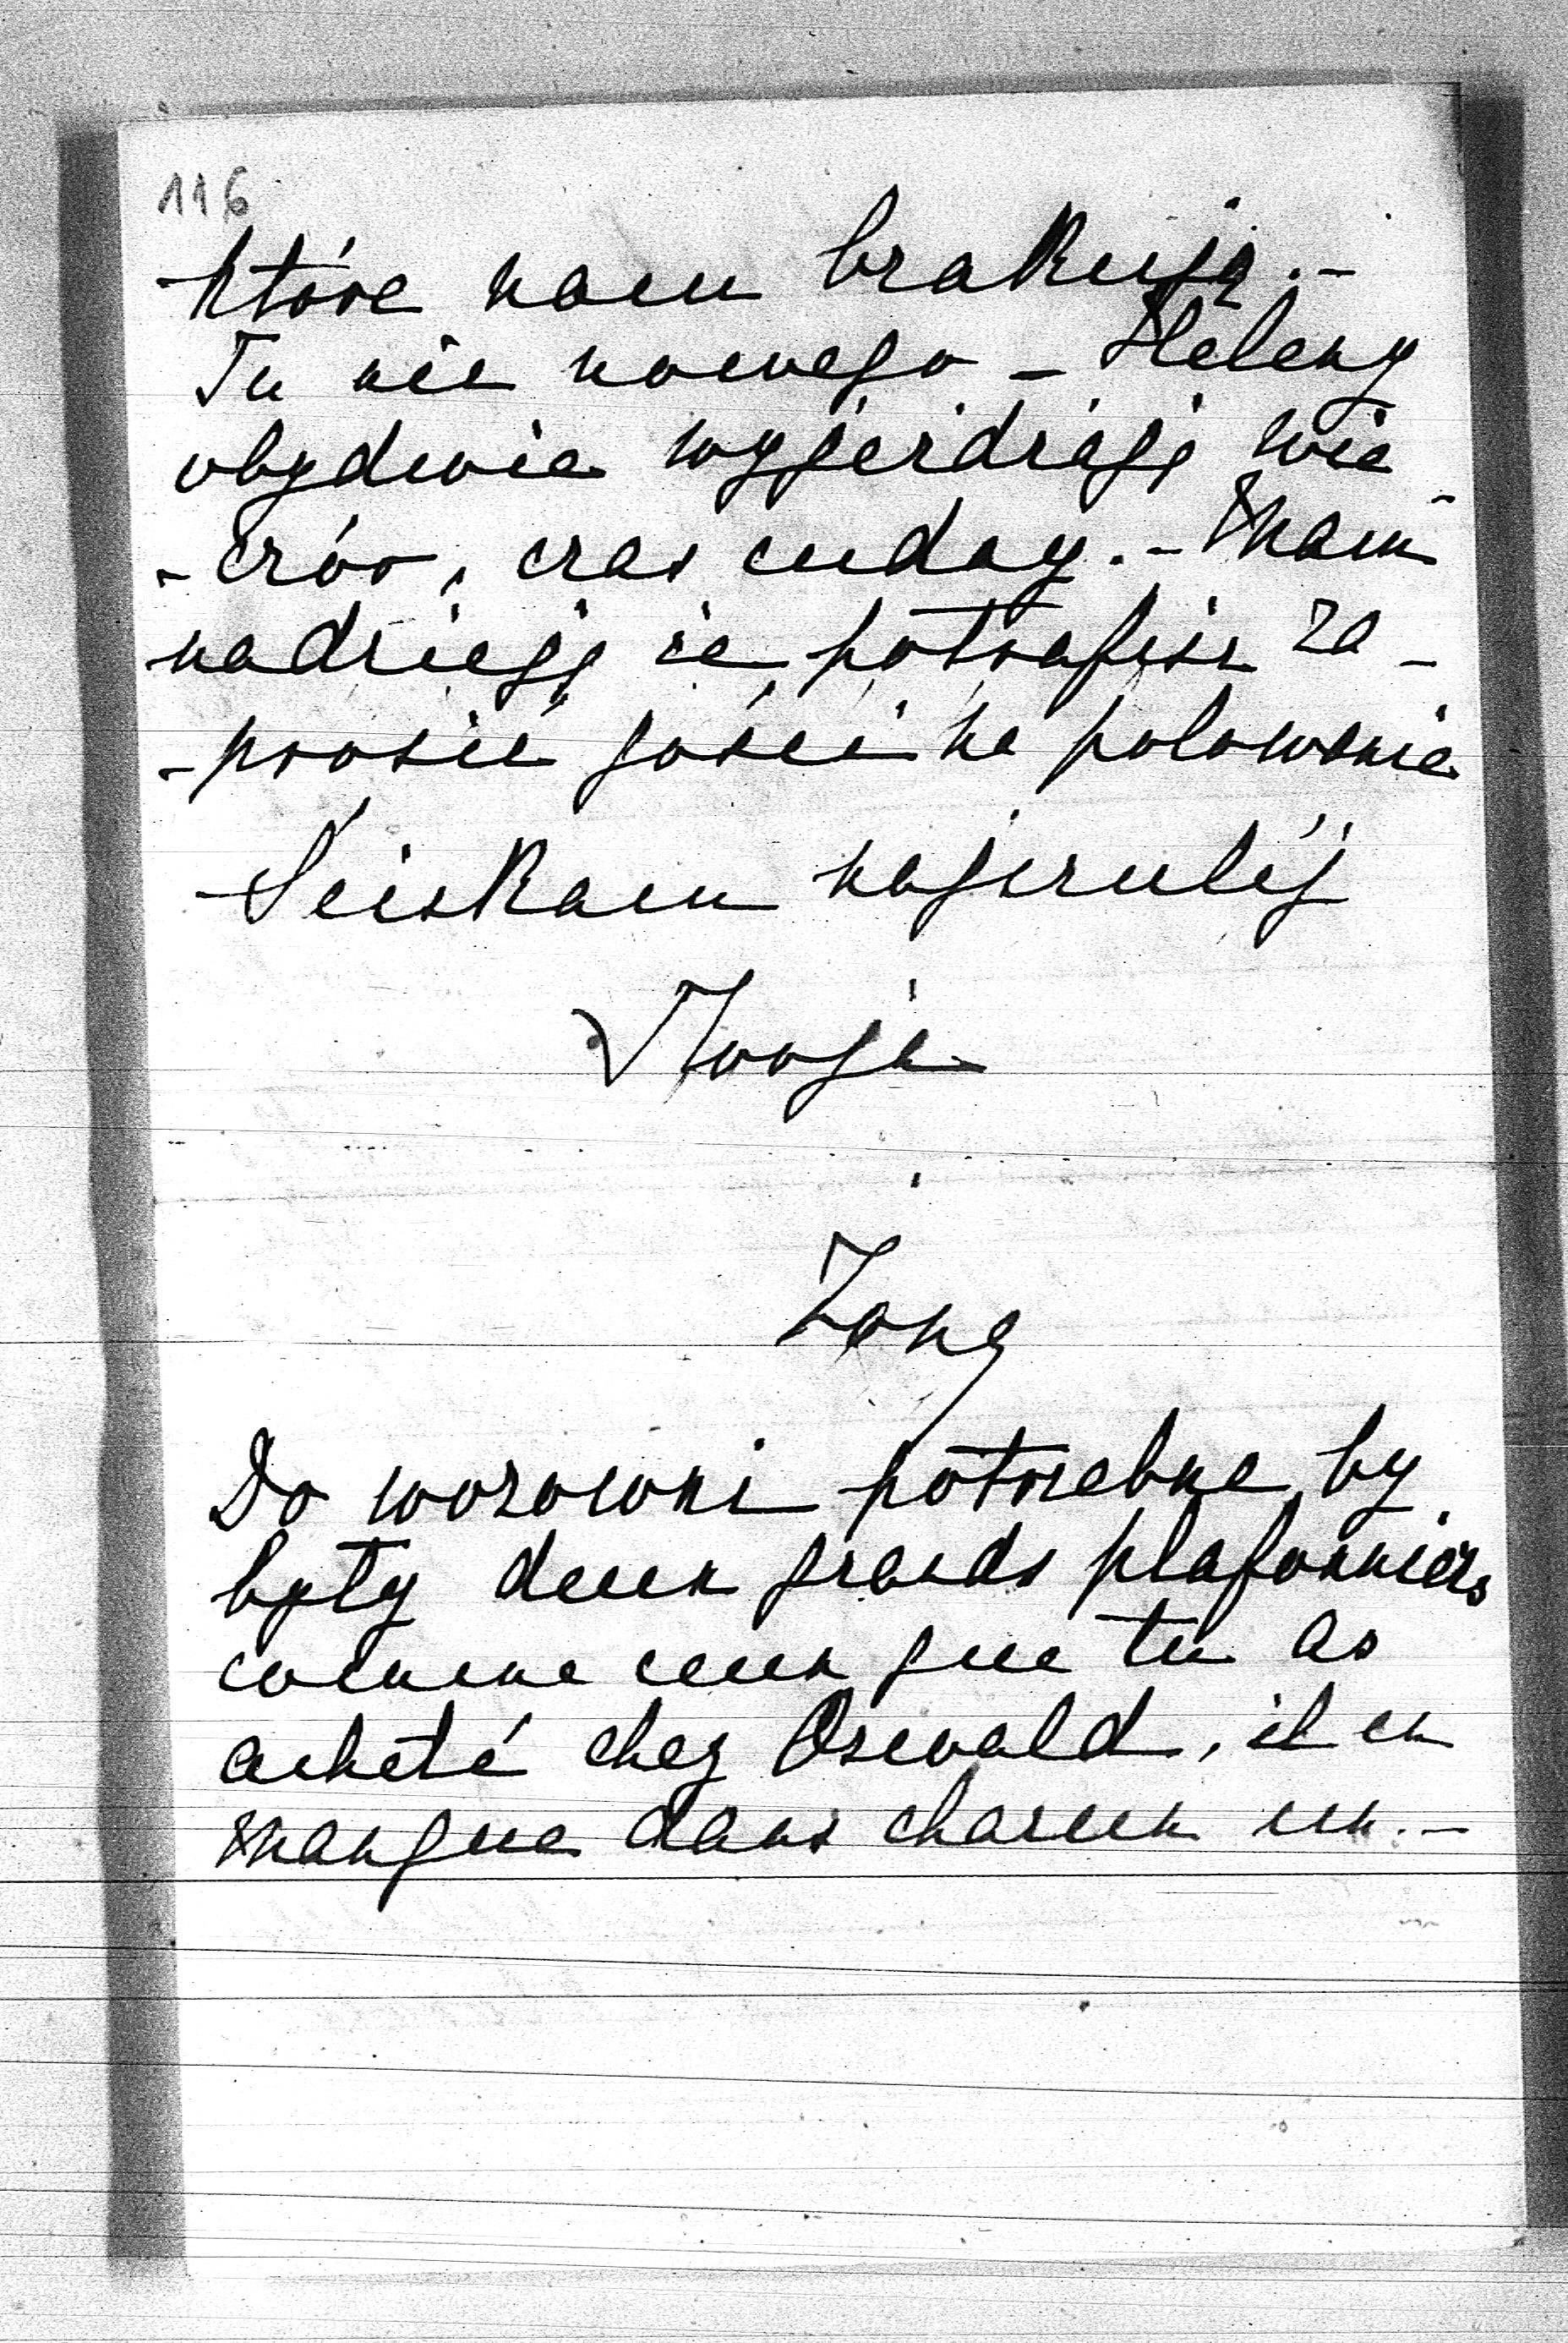 116
które nam brakują.-
Tu nic nowego - Heleny
obydwie wyjeżdżają wie
- czór, czas cudny. - Mam
nadzieję że potrafisz za -
- prosić gości na polowanie
Ściskam najczuléj
Twoja
Żona
Do wozowni potrzebne by
były deux grands plafonniers
comme ceux que tu as
acheté chez Oswald, il en
manque dans chacun un. -